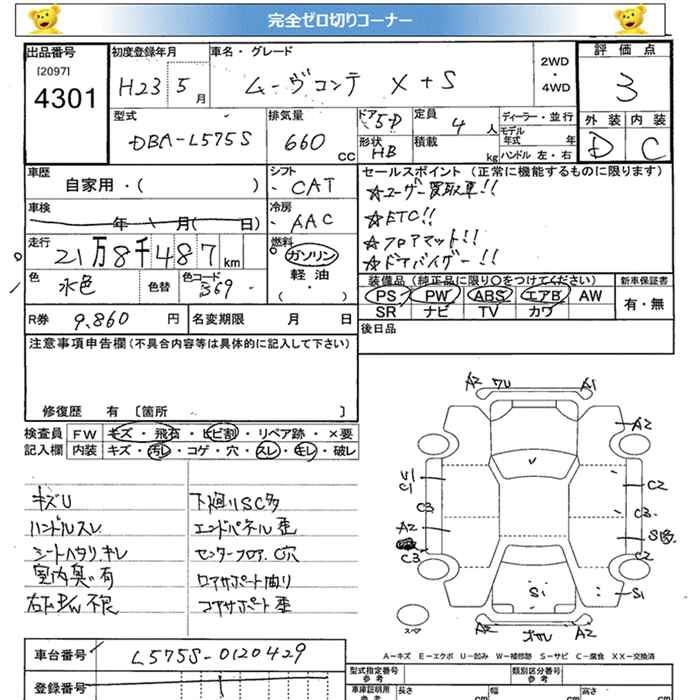 完全ゼロ切りコーナー
出品番号
[2097]
4301
初度登録年月
H23 5 月
車名・グレード
ムーヴコンテ X+S
2WD
・
4WD
評価点
3
型式
DBA-L575S
排気量
660 CC
ドア 5D
形状 HB
定員 4 人
積載 kg
ディーラー・並行
モデル年式 年
ハンドル 左・右
外装 内装
D C
車歴
自家用・( )
シフト
CAT
セールスポイント (正常に機能するものに限ります)
☆ユーザー買取車!!
☆ETC!!
☆フロアマット!!
☆ドアバイザー!!
車検
年 月( 日)
冷房
AAC
走行
21万8千487km
燃料
ガソリン
軽油
( ・ )
色
水色
色替
色コード
B69
装備品 (純正品に限り〇をつけてください)
PS PW ABS エアB AW
SR ナビ TV カワ
新車保証書
有・無
R券 9,860 円
名変期限 月 日
後日品
注意事項申告欄(不具合内容等は具体的に記入して下さい)
修復歴 有 〔箇所 〕
検査員
記入欄
FW キズ・飛石・ヒビ割・リペア跡・×要
内装 キズ・汚レ・コゲ・穴・スレ・キレ・破レ
キズU
ハンドルスレ
シートヘタリ、キレ
室内臭い有
右P/W不良
下廻りSC多
エンドパネル歪
センターフロア、C穴
ロアサポート曲り
コアサポート歪
A2 ワレ A1
A2
U1
C1
C3
A2
C3
C2
C3
S多
C2
S1
S1
A2 A2
スペア
A-キズ E-エクボ U-凹み W-補修跡 S-サビ C-腐食 XX-交換済
車台番号
L575S-0120429
登録番号
型式指定番号
参考
類別区分番号
参考
車庫証明用
参考
長さ cm
幅 cm
高さ cm